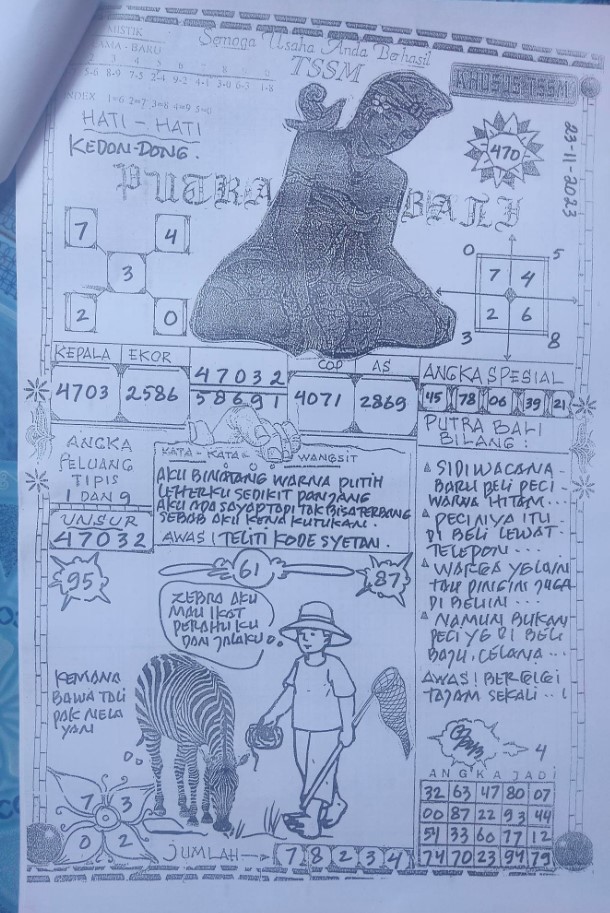 Semoga Usaha Anda Berhasil
TSSM
KHUSUS TSSM
MISTIK
LAMA - BARU
5-6 8-9 7-3 2-4 9-2 4-1 3-0 6-3 1-8
INDEX 1=6 2=7 3=8 4=9 5=0
HATI - HATI
KEDON-DONG.
470
23-11-2023
PUTRA BALI
7 4
3
2 0
0 5
7 4
2 6
3 8
KEPALA EKOR
4703 2586
47032
58691
COP AS
4071 2869
ANGKA SPESIAL
45 78 06 39 21
ANGKA
PELUANG
TIPIS
1 DAN 9
UNSUR
47032
KATA - KATA = WANGSIT
AKU BINATANG WARNA PUTIH
LEHERKU SEDIKIT PANJANG
AKU ADA SAYAP TAPI TAK BISA TERBANG
SEBAB AKU KENA KUTUKAN.
AWAS! TELITI KODE SYETAN.
PUTRA BALI
BILANG :
SIDI WACANA -
BARU BELI PECI -
WARNA HITAM...
PECINYA ITU -
DI BELI LEWAT -
TELEPON - ...
WARGA YG LAIN
TAU DINGINI JUGA
DI BELIIN ...
NAMUN BUKAN
PECI YG DI BELI
BAJU, CELANA ...
AWAS! BERGIGI
TAJAM SEKALI .. !
95
61
87
ZEBRA AKU
MAU IKAT
PERAHU KU
DAN JALAKU.
KEMANA
BAWA TALI
PAK NELA
YAN
7 3
0 2
JUMLAH → 7 8 2 3 4
4
ANGKA JADI
32 63 47 80 07
00 87 22 93 44
54 33 60 77 12
74 70 23 94 79